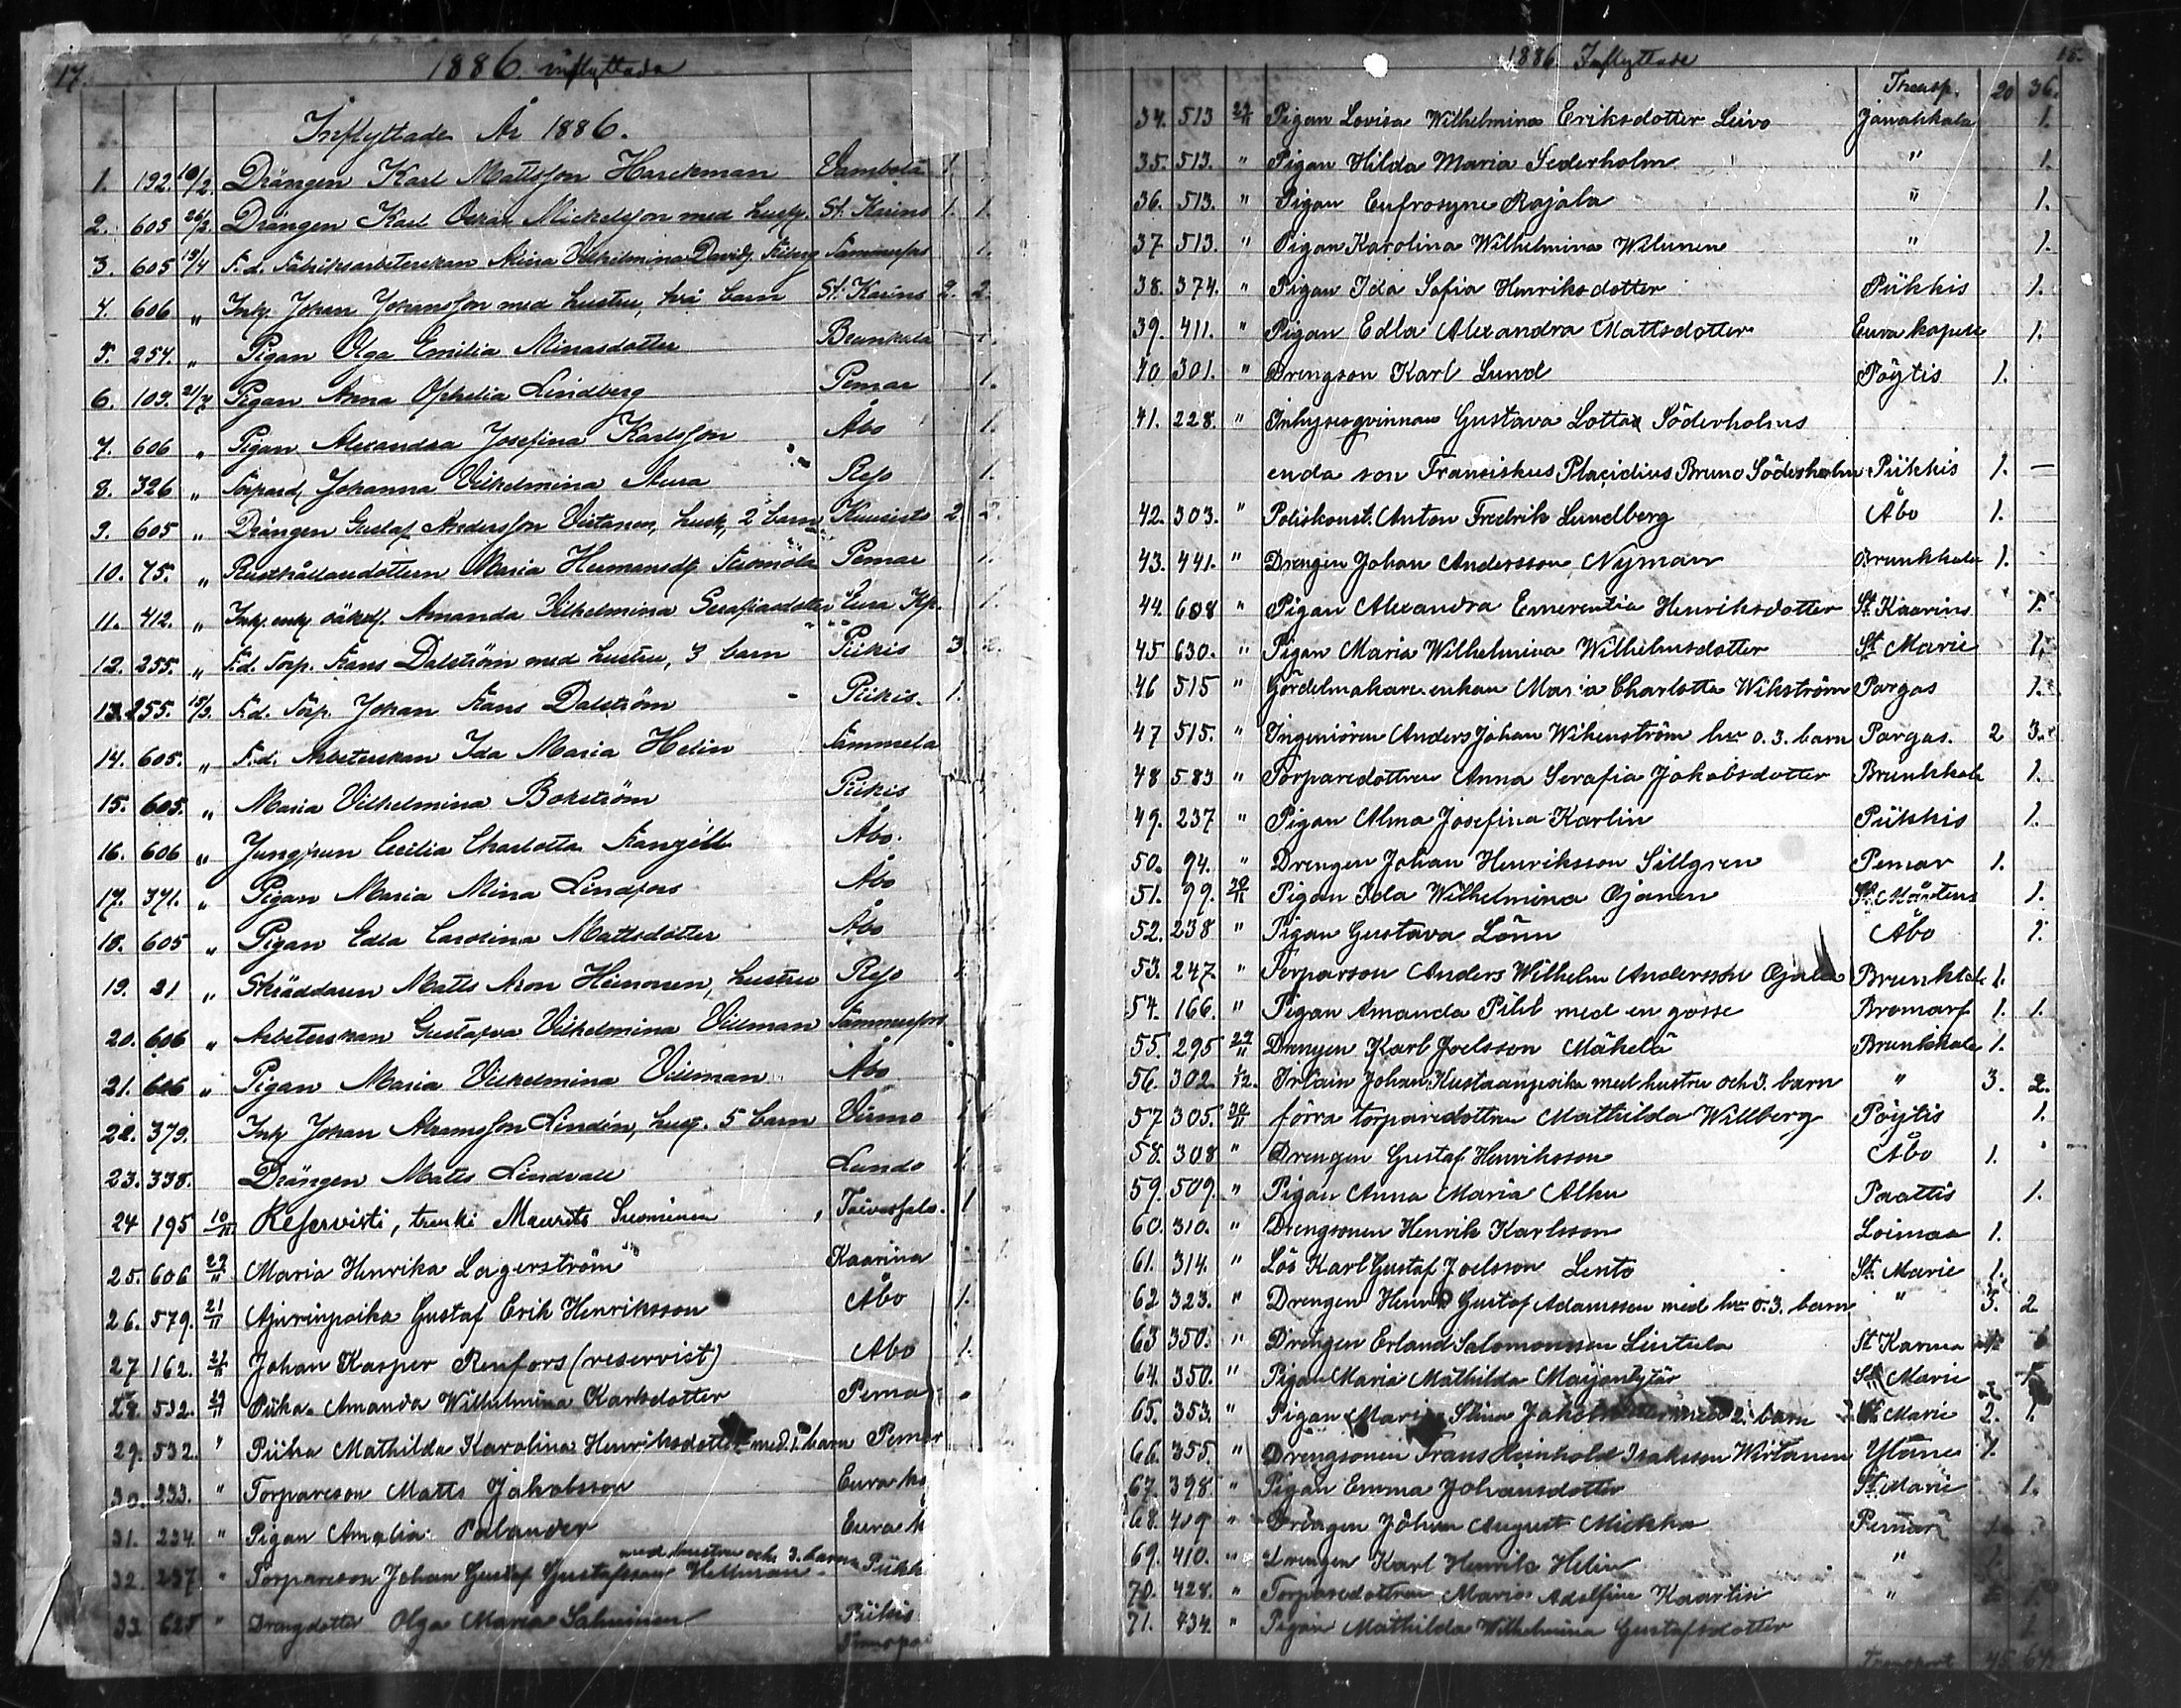 17.
1886. inflyttade
Inflyttade År 1886.
1. 192. 10/2. Drängen Karl Mattsson Harckman Vambola 1.
2. 603 26/2. Drängen Karl Oskar Mickelsson med hustr. St. Karins 1. 1.
3. 605 13/4 F.d. Fabriksarbeterskan Miina Vilhelmina Davidsd. Tammerfors 1.
4. 606 „ Inh. Johan Johansson med hustru, två barn St. Karins 2. 2.
5. 254. „ Pigan Olga Emilia Minasdotter Brunkala 1.
6. 109. 21/7 Pigan Anna Ophelia Lindberg Pemar 1.
7. 606 „ Pigan Alexandra Josefina Karlsson Åbo 1.
8. 326 „ Torpard. Johanna Vilhelmina Aura Reso 1.
9. 605 „ Drängen Gustaf Andersson Virtanen, hust., 2 barn Kuusisto 2 2.
10. 75. „ Rusthållaredottern Maria Hermansd. Pemar 1.
11. 412. „ Inh. Amanda Vilhelmina Serafiasdotter Eura Kp. 1.
12. 255. „ F.d. Torp. Frans Dalström med hustru, 3 barn Piikis 3 2.
13. 255. 15/3. F.d. Torp. Johan Frans Dalström Piikis. 1.
14. 605. „ F.d. Arbeterskan Ida Maria Helin Tammela
15. 605. „ Maria Vilhelmina Bokström Piikis
16. 606 „ Jungfrun Cecilia Charlotta Åbo.
17. 371. „ Pigan Maria Mina Lindfors Åbo
18. 605 „ Pigan Edla Carolina Mattsdotter Åbo
19. 21 „ Skräddaren Matts Aron Heinonen, hustru Reso
20. 606 „ Arbeterskan Gustafva Vilhelmina Villman Tammerfors
21. 606 „ Pigan Maria Vilhelmina Villman Åbo
22. 379. Inh Johan Abramsson Lindén, hust. 5 barn Virmo
23. 338. Drängen Matts Lindvall Lundo 1.
24 195 10/11 Reservisti, trenki Maurits Suominen Taivassalo. 1
25. 606 29/11 Maria Henrika Lagerström Kaarina
26. 579. 21/11 Ajurinpoika Gustaf Erik Henriksson Åbo 1.
27 162. Johan Kasper Renfors (reservist) Åbo 1.
28. 532. Piika Amanda Wilhelmina Karlsdotter Pemar
29. 532. " Piika Mathilda Karolina Henriksdotter med 1. barn Pemar
30. 233. " Torpareson Matts Jakobsson Eura
31. 234. " Pigan Amalia Palander Eura
med hustru och 3. barn
32. 237 " Torpareson Johan Gustaf Gustafsson Hellman Piikk
33. 625 " Drengdotter Olga Maria Salminen Piikis
Transpo
1886. Inflyttade
Transp. 20 36.
34. 513 Pigan Lovisa Wilhelmina Eriksdotter Leivo Janakkala 1.
35. 513. " Pigan Hilda Maria Sederholm " 1.
36. 513. " Pigan Eufrosyne Rajala " 1.
37 513. " Pigan Karolina Wilhelmina Wilunen " 1.
38. 374. " Pigan Ida Sofia Henriksdotter Piikkis 1.
39. 411. " Pigan Edla Alexandra Mattsdotter Eura kapell 1.
40 301. " Drengson Karl Lund Pöytis 1.
41. 228. " Inhysesqvinnan Gustava Lotta Söderholms
enda son Franciskus Placidius Bruno Söderholm Piikkis 1. —
42. 303. " Poliskonst. Anton Fredrik Lundberg Åbo 1.
43. 441. " Drengen Johan Andersson Nyman Brunkkala 1.
44. 608 " Pigan Alexandra Emerentia Henriksdotter St. Kaarins 1.
45 630. " Pigan Maria Wilhelmina Wilhelmsdotter St Marie 1.
46 515 " Gördelmakare enkan Maria Charlotta Wikström Pargas 1.
47 515. " Ingeniören Anders Johan Wikenström hu o. 3. barn Pargas. 2 3.
48 583 " Torparedottren Anna Serafia Jakobsdotter Brunkkala 1.
49. 237 " Pigan Alma Josefina Karlin Piikkis 1.
50. 94. " Drengen Johan Henriksson Sillgren Pemar 1.
51. 99. Pigan Ida Wilhelmina Ojanen St. Mårtens 1.
52. 238 " Pigan Gustava Lönn Åbo 1.
53. 247 " Torparson Anders Wilhelm Andersson Ojala Brunkkala 1.
54. 166. " Pigan Amanda Pihl med en gosse Bromarf 1. 1.
55. 295 29/11 Drengen Karl Joelsson Mäkelä Brunkkala 1.
56. 302. 1/12. Irlain Johan Kustaanpoika med hustru och 3. barn " 3. 2.
57 305. 30/11 förra torparedottren Mathilda Willberg Pöytis 1.
58. 308 " Drengen Gustaf Henriksson Åbo 1.
59. 509. " Pigan Anna Maria Alku Paattis 1.
60. 310. " Drengsonen Henrik Karlsson Loimaa 1.
61. 314. " Lös Karl Gustaf Joelsson Lento St. Marie 1.
62 323. " Drengen Henrik Gustaf Adamsson med hu o. 3. barn " 3. 2
63 350. " Drengen Erland Salomonsson Lintula St Karina
64. 350. " Pigan Maria Mathilda Maijantytär St Marie
65. 353. " Pigan Maria Stina Jakobsdotter med 2. barn St Marie 2. 1.
66. 355. " Drengsonen Frans Reinhold Isaksson Wirtanen Yläne 1.
67. 398. " Pigan Emma Johansdotter St. Marie 1.
68. 409 " Drängen Johan August Mickka Pemar
69. 410. " Drengen Karl Henrik Helin "
70. 428. " Torparedottren Maria Adolfina Kaartin "
71. 434. " Pigan Mathilda Wilhelmina Gustafsdotter 1.
Transport 45 64